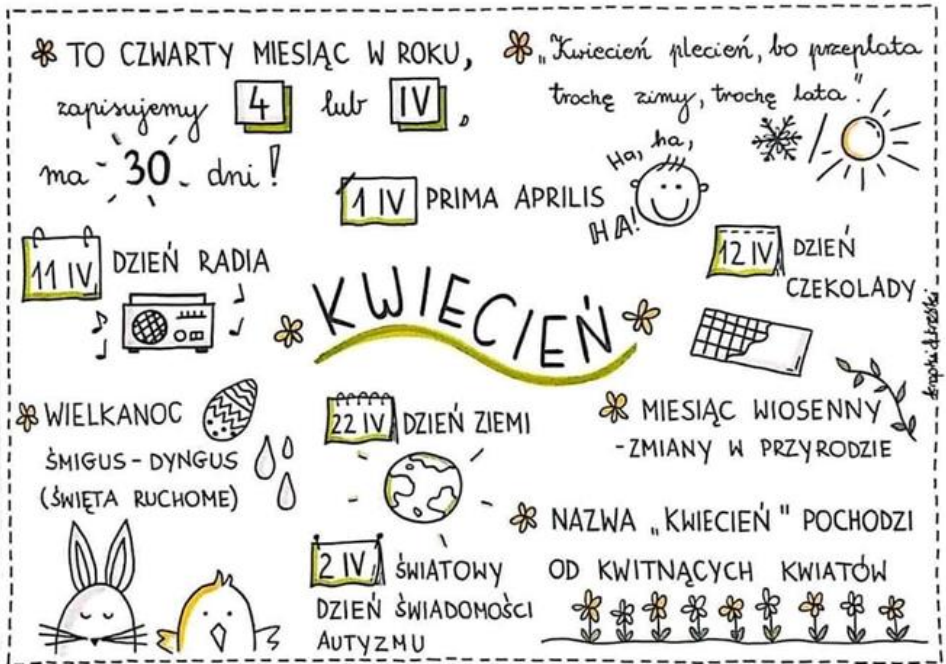 TO CZWARTY MIESIĄC W ROKU,
zapisujemy 4 lub IV,
ma 30 dni!
„Kwiecień plecień, bo przeplata
trochę zimy, trochę lata."
1 IV PRIMA APRILIS
Ha, ha,
HA!
11 IV DZIEŃ RADIA
12 IV DZIEŃ
CZEKOLADY
KWIECIEŃ
WIELKANOC
ŚMIGUS-DYNGUS
(ŚWIĘTA RUCHOME)
22 IV DZIEŃ ZIEMI
MIESIĄC WIOSENNY
-ZMIANY W PRZYRODZIE
2 IV ŚWIATOWY
DZIEŃ ŚWIADOMOŚCI
AUTYZMU
NAZWA „KWIECIEŃ" POCHODZI
OD KWITNĄCYCH KWIATÓW